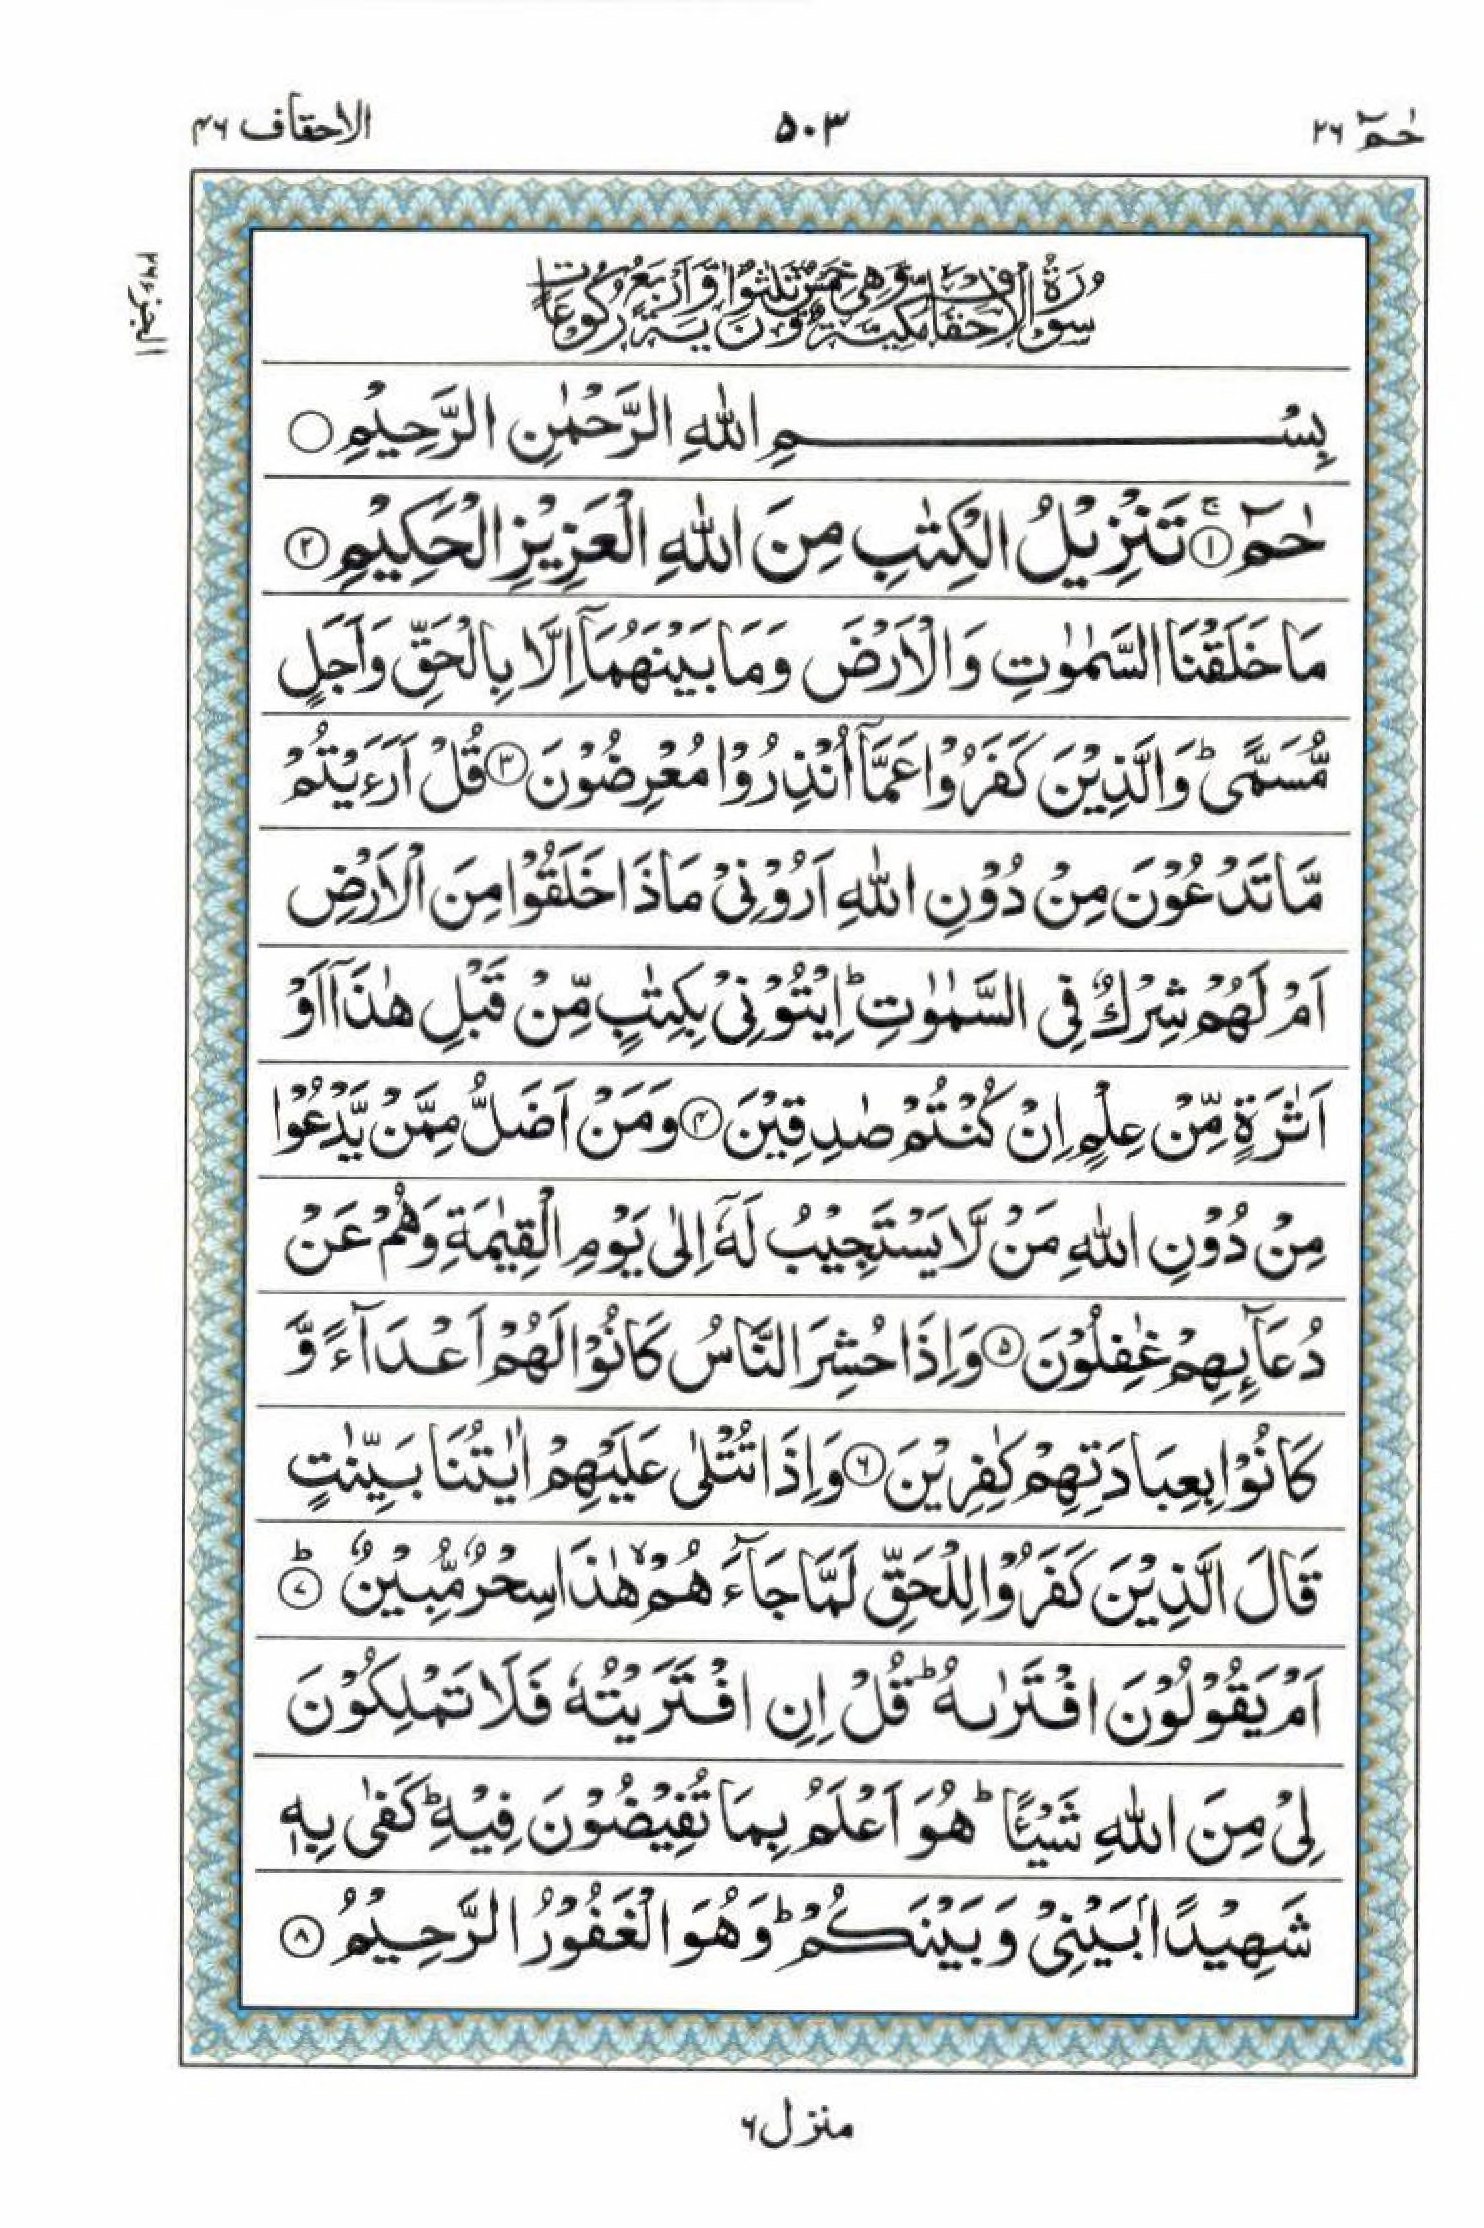 حٰمٓ ٢٦
٥٠٣
الاحقاف ٤٦
الجزء ٢٦
سُوْرَةُ الْاَحْقَافِ مَكِّيَّةٌ وَّهِيَ خَمْسٌ وَّثَلٰثُوْنَ اٰيَةً وَّاَرْبَعُ رُكُوْعَاتٍ
بِسْمِ اللّٰهِ الرَّحْمٰنِ الرَّحِيْمِ ○
حٰمٓ ۚ﴿١﴾ تَنْزِيْلُ الْكِتٰبِ مِنَ اللّٰهِ الْعَزِيْزِ الْحَكِيْمِ ﴿٢﴾
مَا خَلَقْنَا السَّمٰوٰتِ وَالْاَرْضَ وَمَا بَيْنَهُمَآ اِلَّا بِالْحَقِّ وَاَجَلٍ
مُّسَمًّى ؕ وَالَّذِيْنَ كَفَرُوْا عَمَّآ اُنْذِرُوْا مُعْرِضُوْنَ ﴿٣﴾ قُلْ اَرَءَيْتُمْ
مَّا تَدْعُوْنَ مِنْ دُوْنِ اللّٰهِ اَرُوْنِيْ مَاذَا خَلَقُوْا مِنَ الْاَرْضِ
اَمْ لَهُمْ شِرْكٌ فِي السَّمٰوٰتِ ؕ اِيْتُوْنِيْ بِكِتٰبٍ مِّنْ قَبْلِ هٰذَآ اَوْ
اَثٰرَةٍ مِّنْ عِلْمٍ اِنْ كُنْتُمْ صٰدِقِيْنَ ﴿٤﴾ وَمَنْ اَضَلُّ مِمَّنْ يَّدْعُوْا
مِنْ دُوْنِ اللّٰهِ مَنْ لَّا يَسْتَجِيْبُ لَهٗٓ اِلٰى يَوْمِ الْقِيٰمَةِ وَهُمْ عَنْ
دُعَآئِهِمْ غٰفِلُوْنَ ﴿٥﴾ وَاِذَا حُشِرَ النَّاسُ كَانُوْا لَهُمْ اَعْدَآءً وَّ
كَانُوْا بِعِبَادَتِهِمْ كٰفِرِيْنَ ﴿٦﴾ وَاِذَا تُتْلٰى عَلَيْهِمْ اٰيٰتُنَا بَيِّنٰتٍ
قَالَ الَّذِيْنَ كَفَرُوْا لِلْحَقِّ لَمَّا جَآءَهُمْ ۙ هٰذَا سِحْرٌ مُّبِيْنٌ ؕ﴿٧﴾
اَمْ يَقُوْلُوْنَ افْتَرٰىهُ ؕ قُلْ اِنِ افْتَرَيْتُهٗ فَلَا تَمْلِكُوْنَ
لِيْ مِنَ اللّٰهِ شَيْـًٔا ؕ هُوَ اَعْلَمُ بِمَا تُفِيْضُوْنَ فِيْهِ ؕ كَفٰى بِهٖ
شَهِيْدًاۢ بَيْنِيْ وَبَيْنَكُمْ ؕ وَهُوَ الْغَفُوْرُ الرَّحِيْمُ ﴿٨﴾
منزل ٦